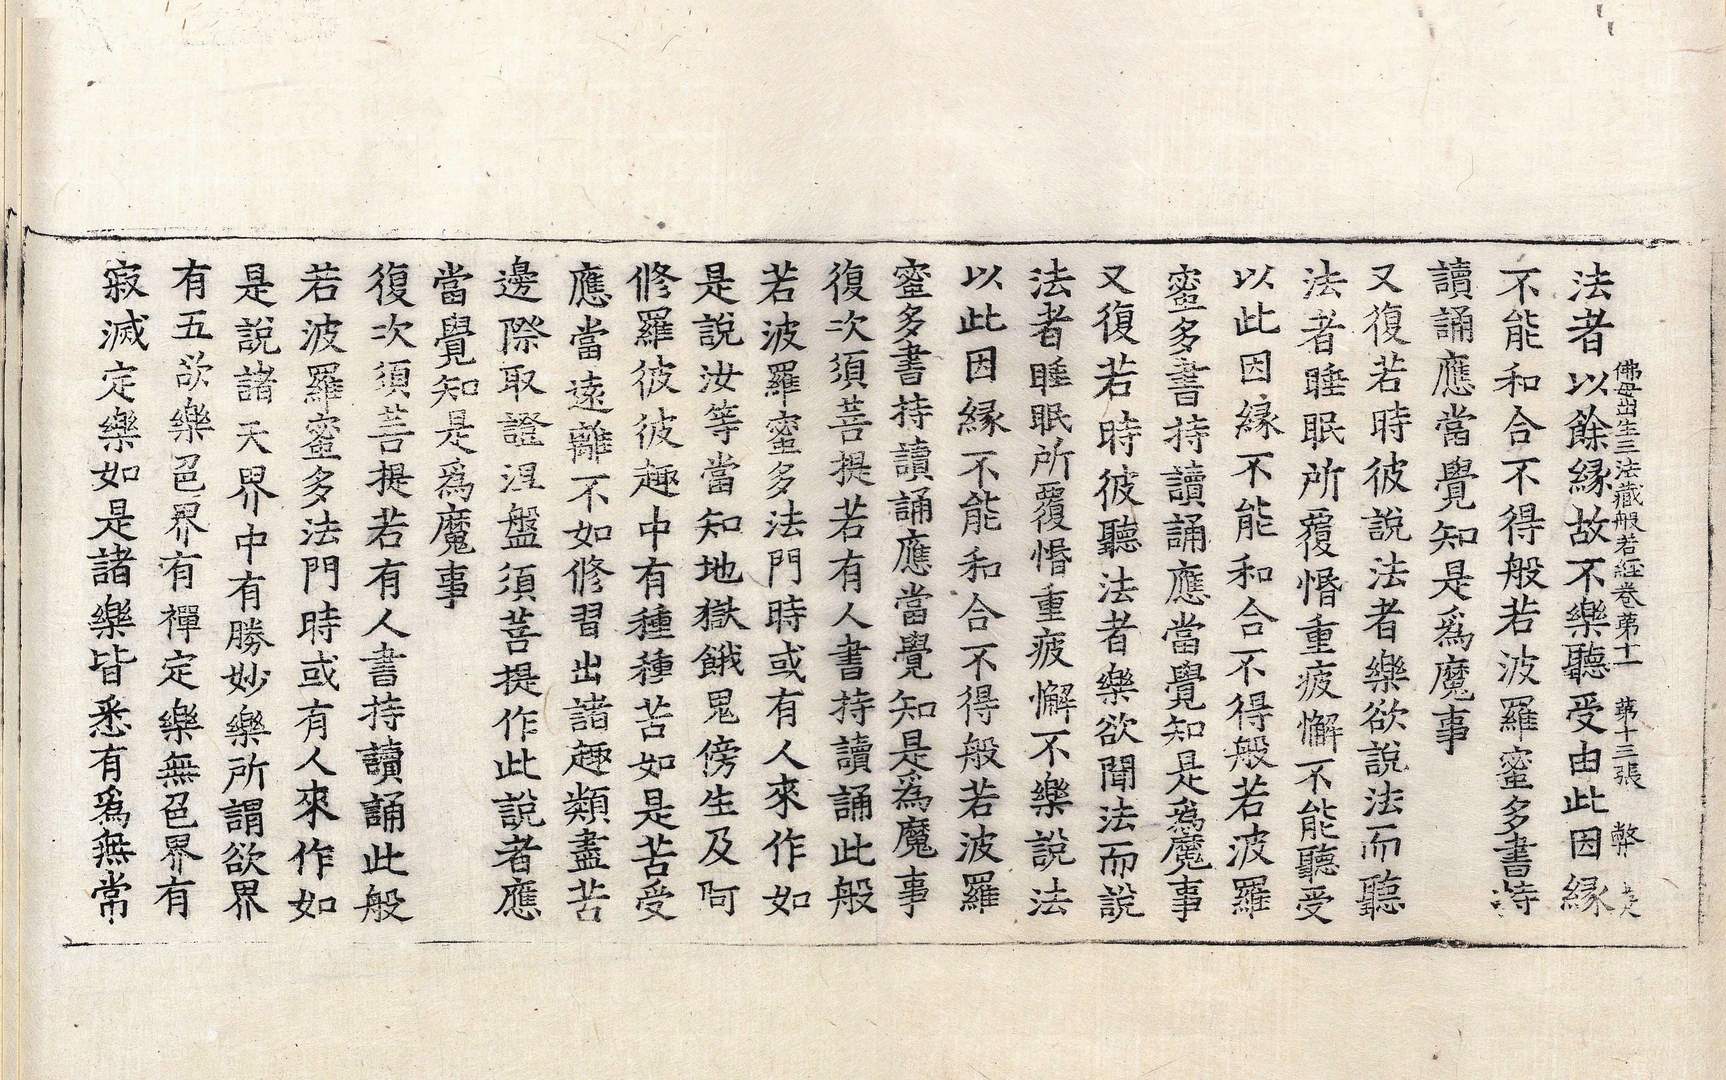 法者以餘縁故不樂聽受由此因縁
佛母出生三法藏般若經卷第十一 第十三張 弊
不能和合不得般若波羅蜜多書持
讀誦應當覺知是爲魔事
又復若時彼說法者樂欲說法而聽
法者睡眠所覆惛重疲懈不能聽受
以此因縁不能和合不得般若波羅
蜜多書持讀誦應當覺知是爲魔事
又復若時彼聽法者樂欲聞法而說
法者睡眠所覆惛重疲懈不樂說法
以此因縁不能和合不得般若波羅
蜜多書持讀誦應當覺知是爲魔事
復次須菩提若有人書持讀誦此般
若波羅蜜多法門時或有人來作如
是說汝等當知地獄餓鬼傍生及阿
修羅彼彼趣中有種種苦如是苦受
應當遠離不如修習出諸趣類盡苦
邊際取證涅盤須菩提作此說者應
當覺知是爲魔事
復次須菩提若有人書持讀誦此般
若波羅蜜多法門時或有人來作如
是說諸天界中有勝妙樂所謂欲界
有五欲樂色界有禪定樂無色界有
寂滅定樂如是諸樂皆悉有爲無常